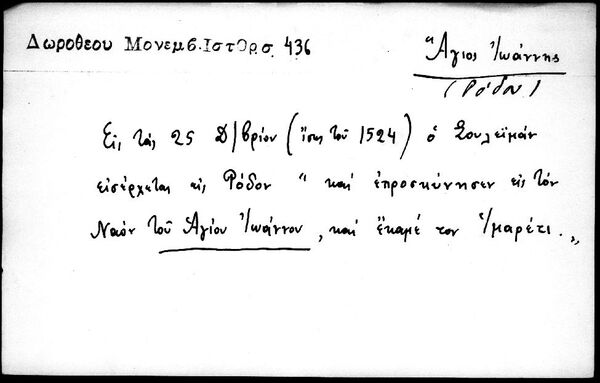 Δωροθεου Μονεμβ. Ιστορ σ 436
Ἅγιος Ἰωάννης
(Ρόδου)
Εἰς τὰς 25 Δ/βρίου (ἴσως τοῦ 1524) ὁ Σουλεϊμάν
εἰσέρχεται εἰς Ρόδον " καὶ ἐπροσκύνησεν εἰς τόν
Ναόν τοῦ Ἁγίου Ἰωάννου, καὶ ἔκαμέ τον Ἰμαρέτι. „